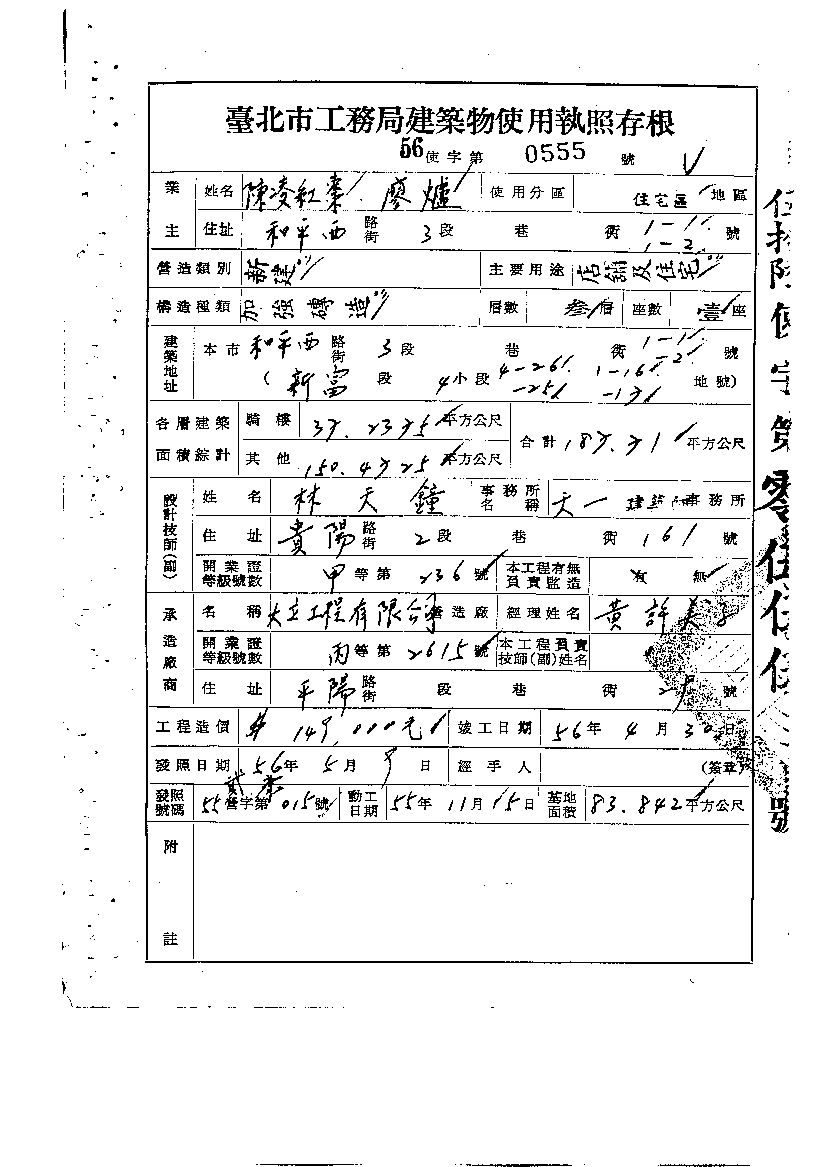 臺北市工務局建築物使用執照存根
56使字第 0555 號
業主 姓名 陳凌紅棗 廖爐 使用分區 住宅區 地區
住址 和平西 路街 3段 巷 衖 1-1 1-2 號
營造類別 新建 主要用途 店舖及住宅
構造種類 加強磚造 層數 叁層 座數 壹座
建築地址 本市 和平西 路街 3段 巷 衖 1-1 -2 號
(新富 段 4小段 4-26 1-16 -25 地號)
各層建築面積綜計 騎樓 平方公尺 合計 平方公尺
其他 平方公尺
設計技師(副) 姓名 林天鐘 事務所名稱 天一建築師事務所
住址 貴陽 路街 2段 巷 衖 161 號
開業證等級號數 甲等第 236號 本工程有無負責監造 有 無
承造廠商 名稱 大立工程有限公司營造廠 經理姓名 黃許美子
開業證等級號數 丙等第 2615號 本工程負責技師(副)姓名
住址 平陽 路街 段 巷 衖 號
工程造價 竣工日期 56年 4月 30日
發照日期 56年 5月 日 經手人 (簽章)
發照號碼 55營字第 015號 動工日期 55年 11月 15日 基地面積 83.842平方公尺
附註
伍拾陸使字第零伍伍伍號